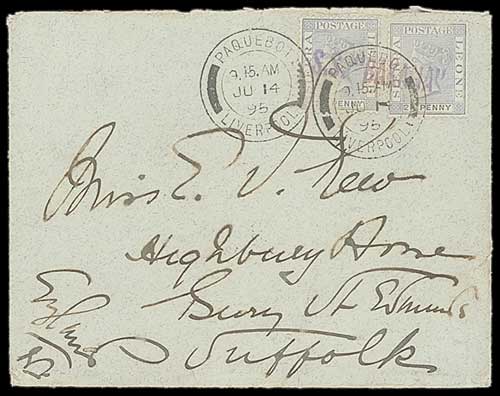 PAQUEBOT
9.15.AM
JU 14
95
LIVERPOOL
POSTAGE
PENNY
POSTAGE
LEONE
PENNY
PAQUEBOT
9.15.AM
JU 1
95
LIVERPOOL
Miss E. V. New
Highbury House
Bury St Edmunds
Suffolk
England